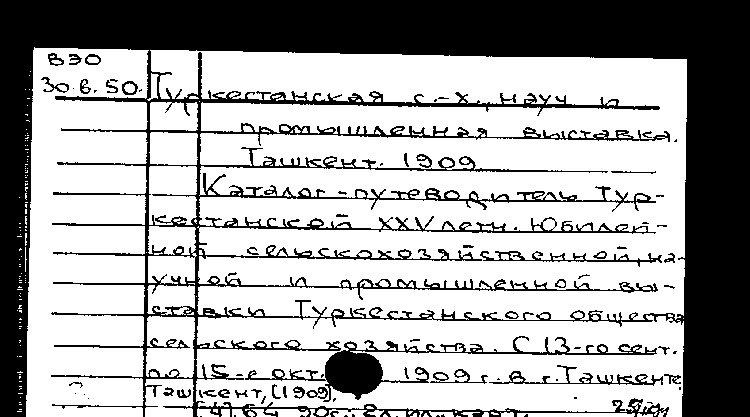 ВЭО
30.6.50. Туркестанская с.-х., науч и
промышленная выставка.
Ташкент. 1909
Каталог-путеводитель Тур-
кестанской XXV летн. Юбилей-
ной сельскохозяйственной, на-
учной и промышленной вы-
ставки Туркестанского общества
сельского хозяйства. С 13-го сент.
по 15-е окт. 1909 г. в г. Ташкенте
Ташкент, [1909].
64, 90 с.